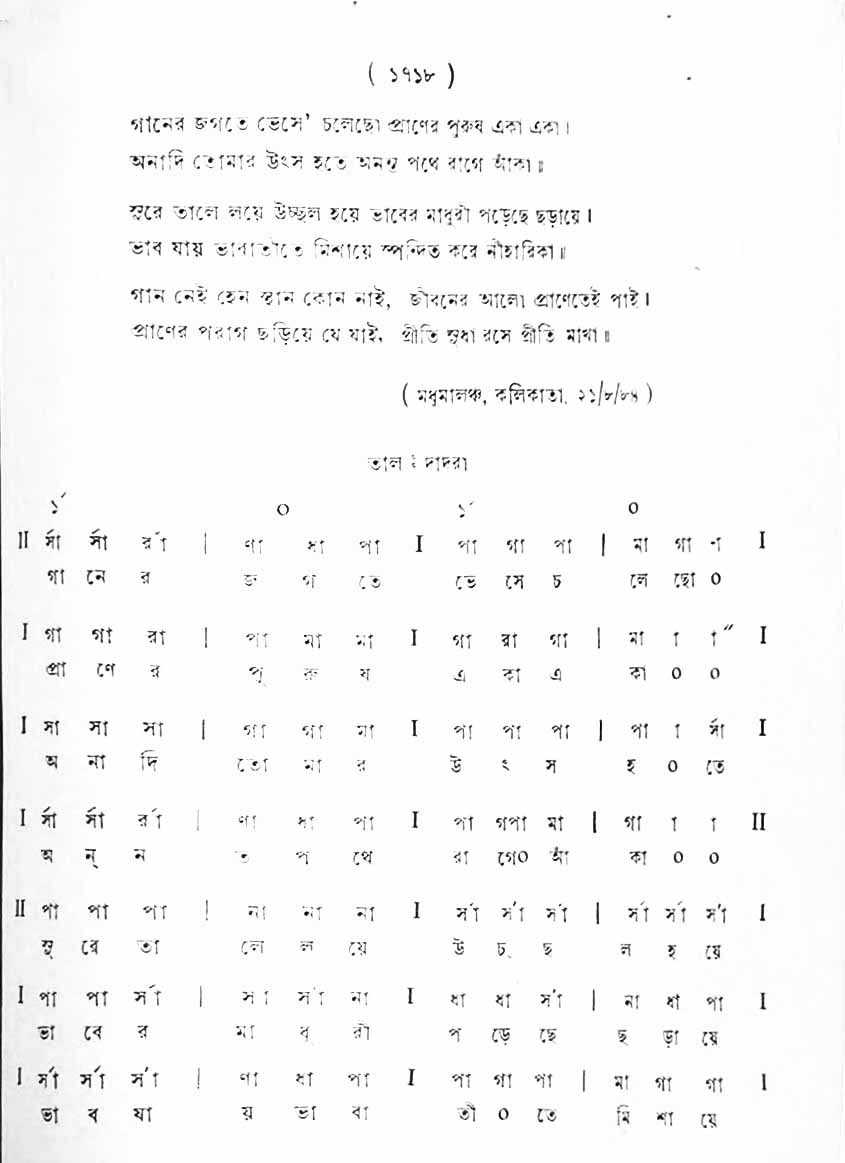 ( ১৭১৮ )
গানের জগতে ভেসে' চলেছো প্রাণের পুরুষ একা একা।
অনাদি তোমার উৎস হতে অনন্ত পথে রাগে আঁকা॥
সুরে তালে লয়ে উচ্ছল হয়ে ভাবের মাধুরী পড়েছে ছড়ায়ে।
ভাব যায় ভাবাতীতে মিশায়ে স্পন্দিত করে নীহারিকা॥
গান নেই হেন স্থান কোন নাই, জীবনের আলো প্রাণেতেই পাই।
প্রাণের পরাগ ছড়িয়ে যে যাই, প্রীতি সুধা রসে প্রীতি মাখা॥
( মধুমালঞ্চ, কলিকাতা, ২১/৮/৮৪ )
তাল ঃ দাদরা
১´ ০ ১´ ০
II র্সা র্সা র্রা | ণা ধা পা I পা গা পা | মা গা ণ I
গা নে র জ গ তে ভে সে চ লে ছো ০
I গা গা রা | পা মা মা I গা রা গা | মা া া" I
প্রা ণে র পু রু ষ এ কা এ কা ০ ০
I সা সা সা | গা গা মা I পা পা পা | পা া র্সা I
অ না দি তো মা র উ ৎ স হ ০ তে
I র্সা র্সা র্রা | ণা ধা পা I পা গপা মা | গা া া II
অ ন্ ন ত প থে রা গে০ আঁ কা ০ ০
II পা পা পা | না না না I র্সা র্সা র্সা | র্সা র্সা র্সা I
সু রে তা লে ল য়ে উ চ্ ছ ল হ য়ে
I পা পা র্সা | র্সা র্সা না I ধা ধা র্সা | না ধা পা I
ভা বে র মা ধু রী প ড়ে ছে ছ ড়া য়ে
I র্সা র্সা র্সা | ণা ধা পা I পা গা পা | মা গা গা I
ভা ব যা য় ভা বা তী ০ তে মি শা য়ে